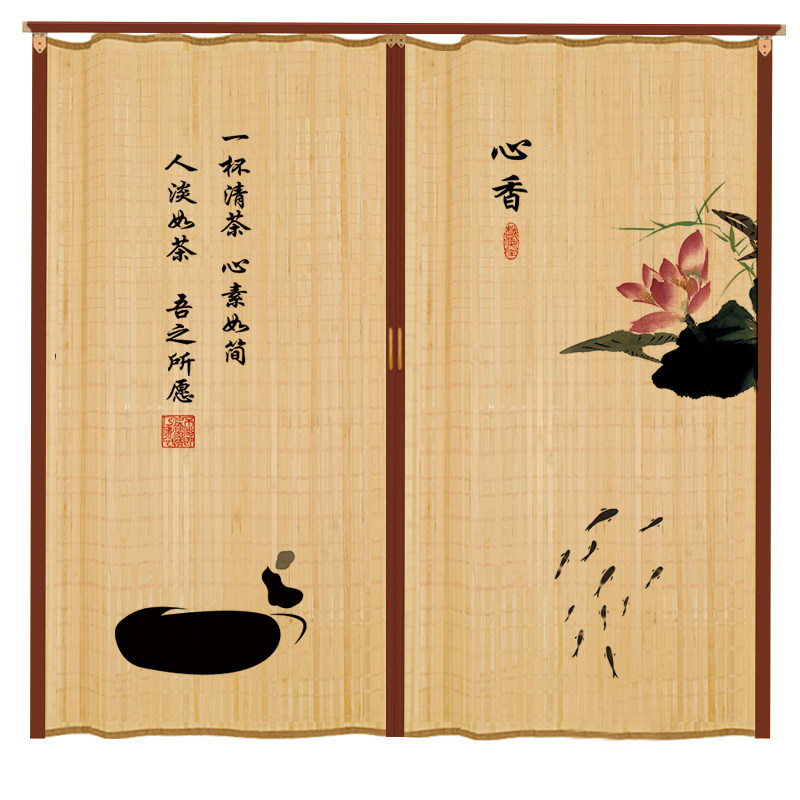 心香
一杯清茶 心素如简
人淡如茶 吾之所愿